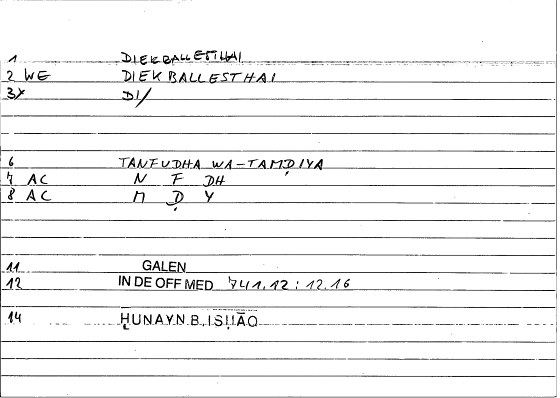 1 DIEKBALLESTHAI
2 WE DIEKBALLESTHAI
3 DI/
6 TANFUDHA WA-TAMḌIYA
7 AC N F DH
8 AC M Ḍ Y
11 GALEN
12 IN DE OFF MED 741.12 : 12.16
14 ḤUNAYN B. ISḤĀQ